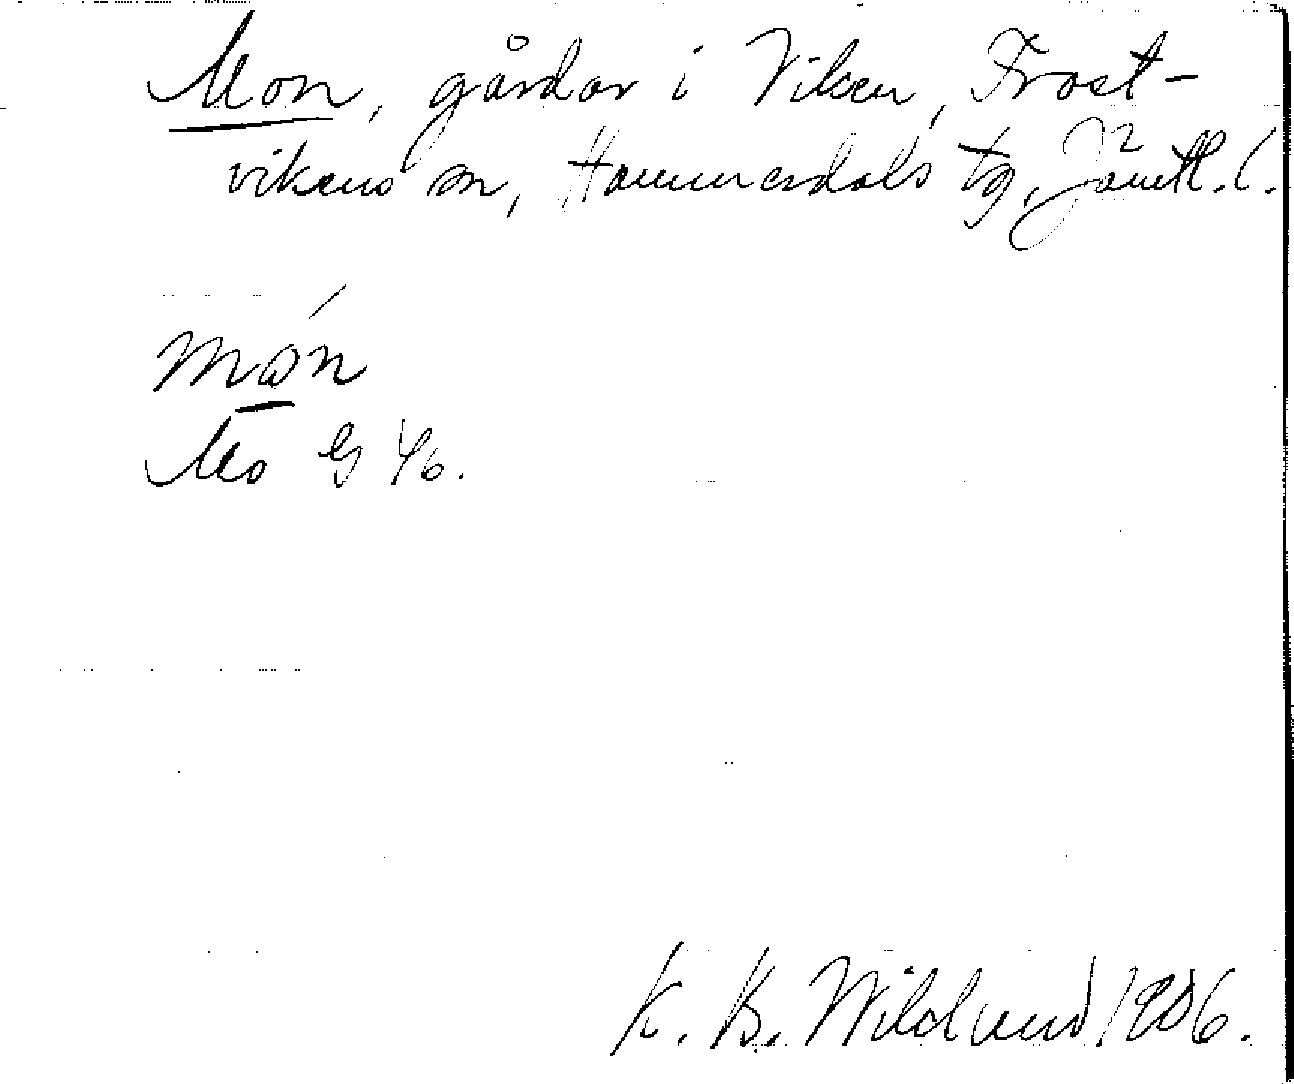 Mon, gårdar i Viken, Frost-
vikens sn, Hammerdals tg, Jämtl. l.
món
Mo G 46.
K. B. Wiklund 1906.